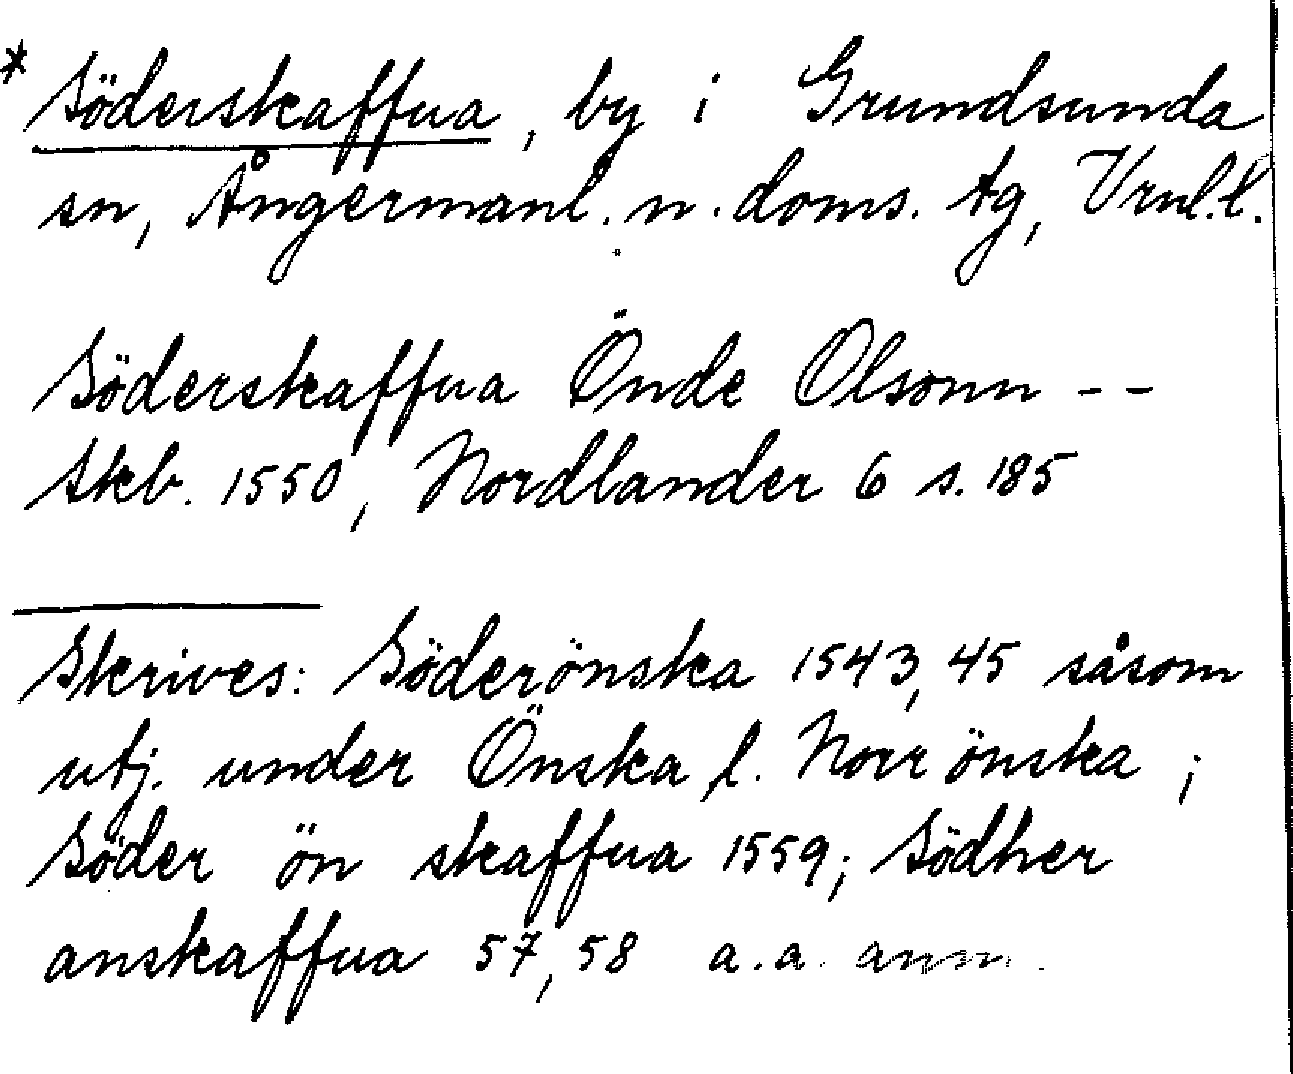 * Söderskaffua, by i Grundsunda
sn, Ångermanl. n. doms. tg, Vrnl. l.
Söderskaffua Önde Olsonn --
Skb. 1550, Nordlander 6 s. 185
Skrives: Söderönska 1543, 45 såsom
utj. under Önska l. Norrönska;
Söder ön skaffua 1559; Södher
anskaffua 57, 58 a. a. anm.